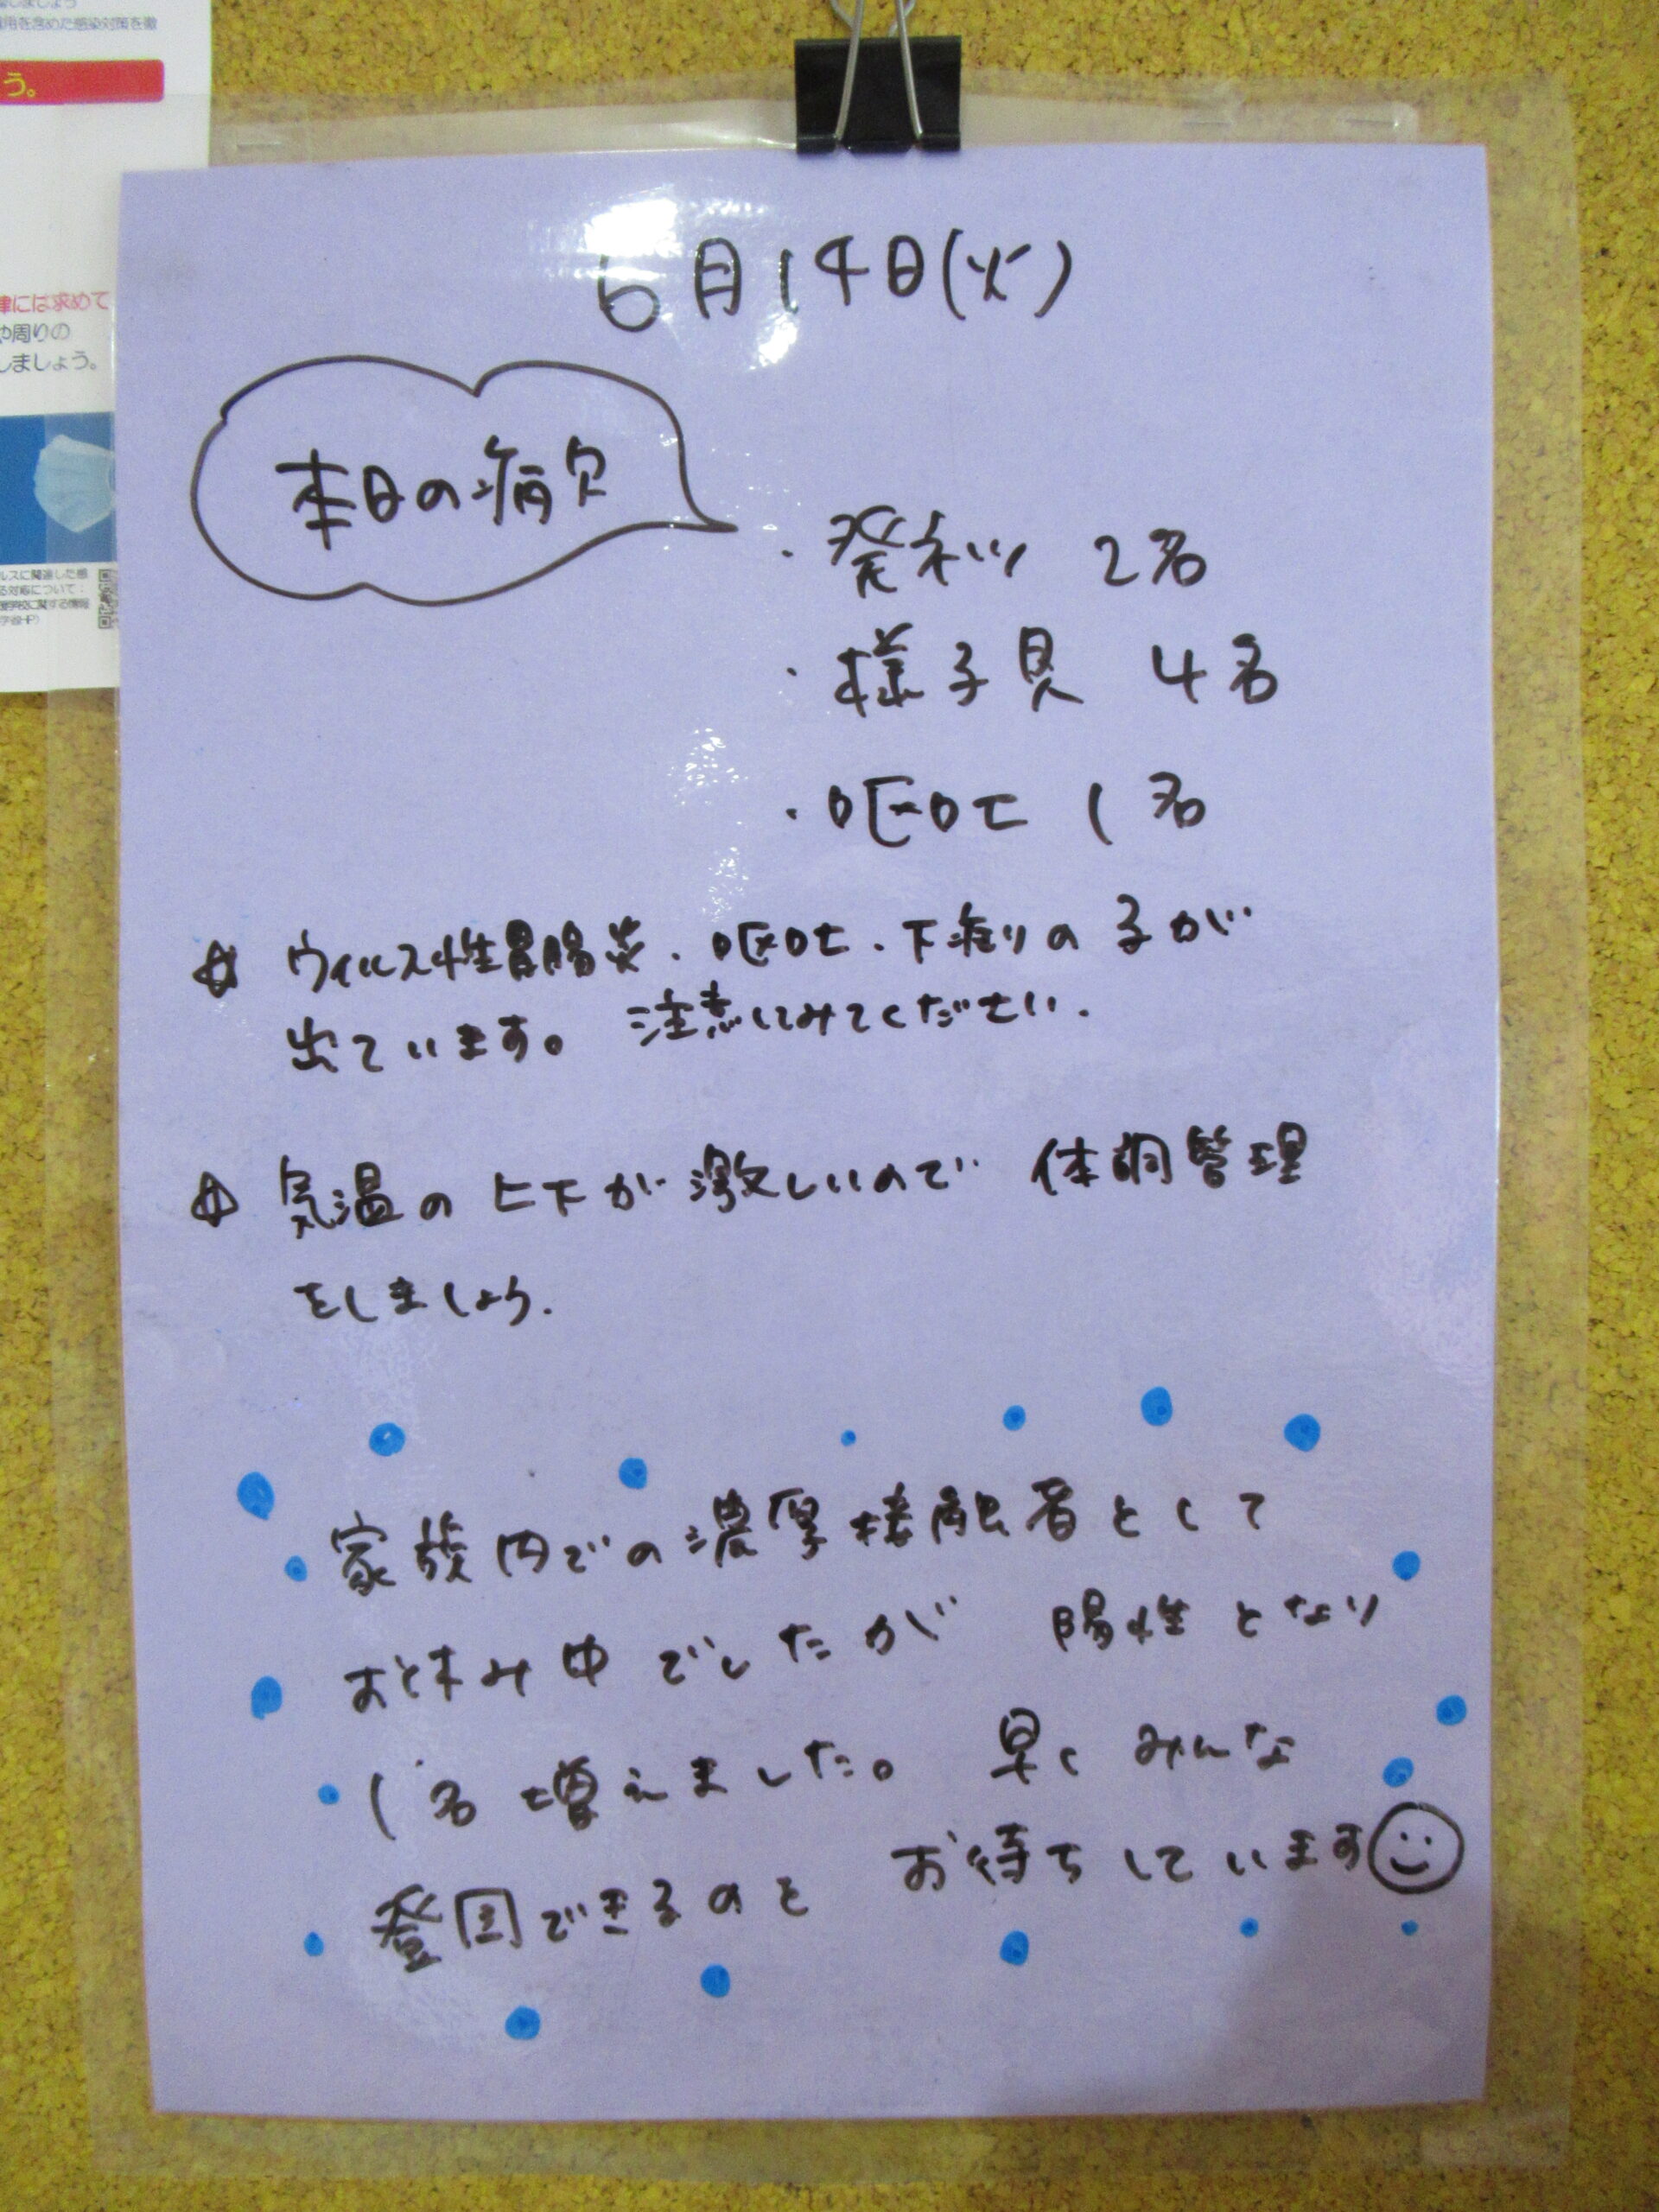 しましょう
用を含めた感染対策を徹
う。
律には求めて
や周りの
しましょう。
ルスに関連した感
る対応について：
6月14日(火)
本日の病欠
・発ネツ 2名
・様子見 4名
・嘔吐 1名
☆ ウィルス性胃腸炎、嘔吐、下痢りの子が
出ています。注意してみてください.
☆ 気温の上下が激しいので 体調管理
をしましょう.
家族内での濃厚接触者として
お休み中でしたが 陽性となり
1名増えました。早くみんな
登園できるのを お待ちしています